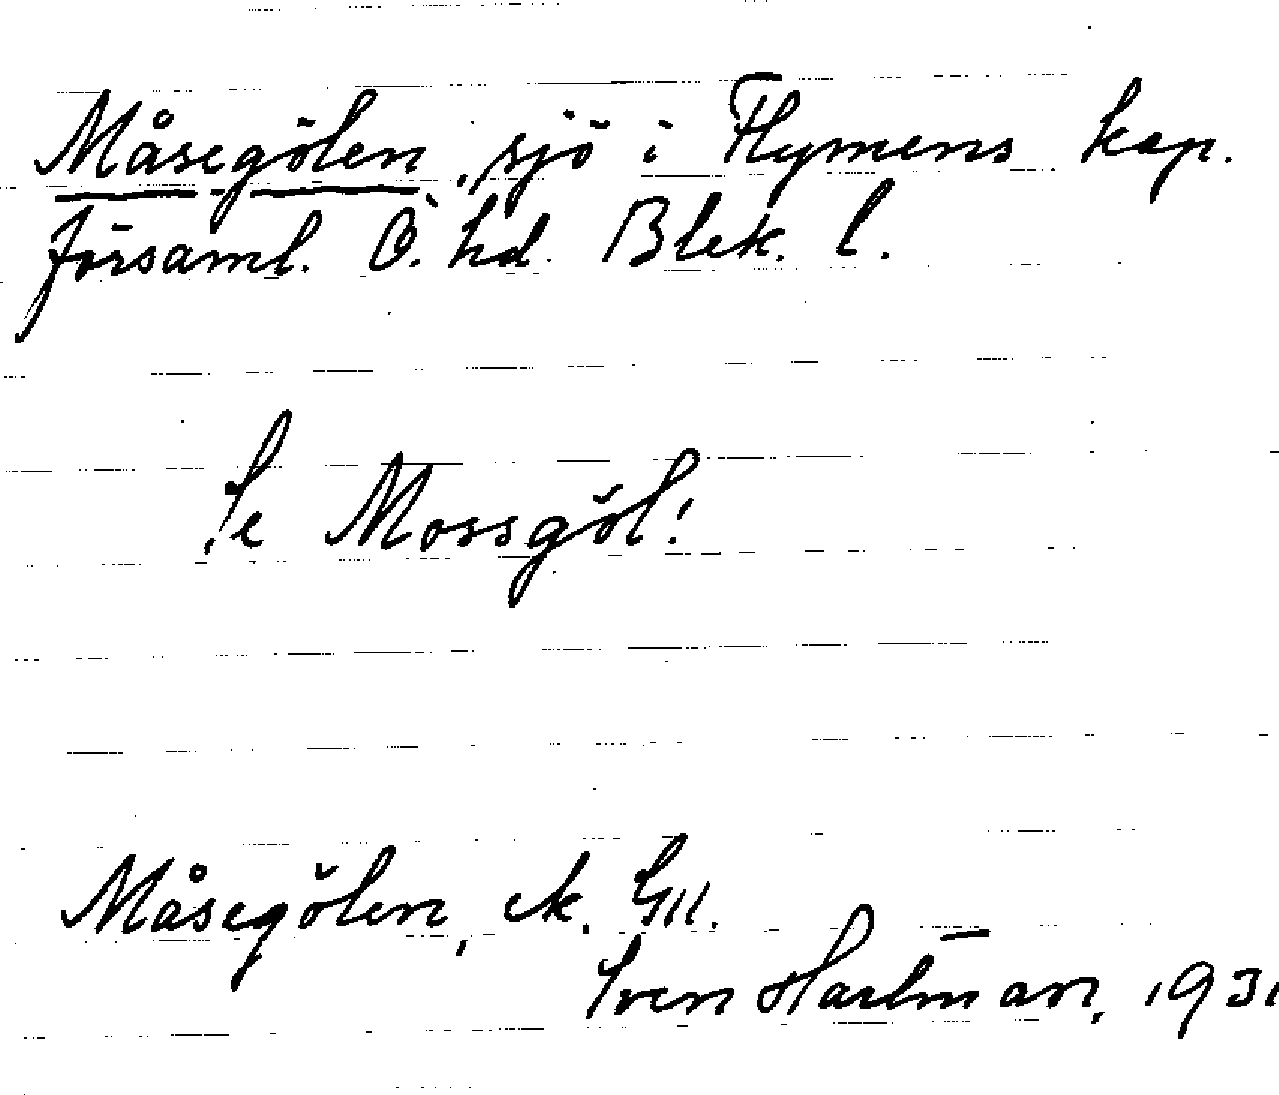 Måsegölen, sjö i Flymens kap.
församl. Ö. hd. Blek. l.
Se Mossgöl!
Måsegölen, ek. GII.
Sven Hartman, 1931